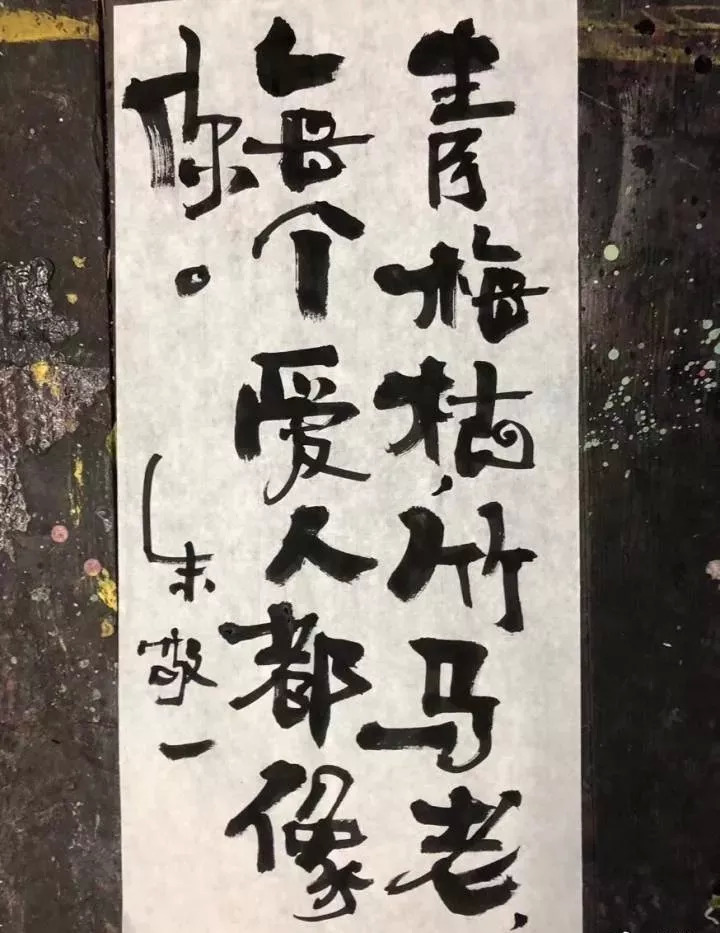 青梅枯,竹马老,
每个爱人都像
你。
朱敬一